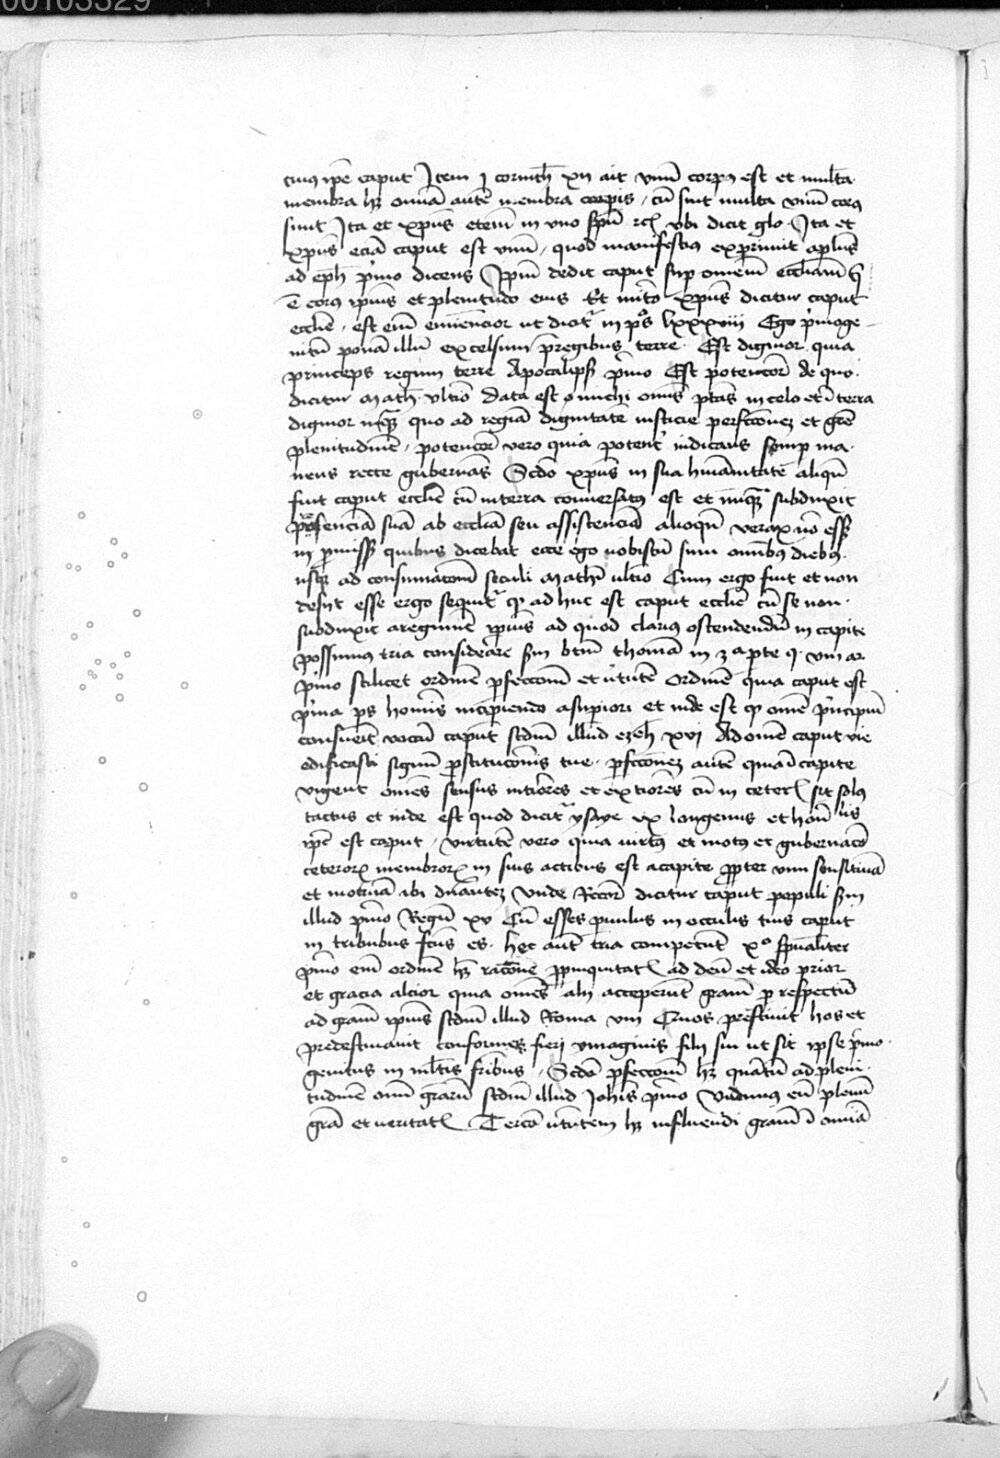 00103329
cuius ipe caput Item j corinth xij ait vnu corpus est et multa
membra hz omnia aute membra corpis / cu sint multa vnu corpus
sunt Ita et xpus etenim in vno spu rc vbi dicit glo Ita et
xpus ecia caput est vnu / quod manifestius exprimit aplus
ad eph primo dicens Ipm dedit caput sup omnem eccliam q
e corpus ipius et plenitudo eius Et xpus dicitur caput
ecclie / est eni eminencior ut dicitr in ps lxxxviij Ego primoge
nitu pona illu excelsum pre regibus terre Est dignior quia
princeps regum terre Apocalips primo Est potencior de quo
dicitur math vltio Data est michi omis ptas in celo et i terra
dignior quo ad regia dignitate iusticie perfectionez et gre
plenitudine / potencior vero quia potent iudicans semp ma
nens recte gubernas Scdo xpus in sua humanitate aliqn
fuit caput ecclie cu in terra conuersatus est et nuqua subduxit
presencia sua ab ecclia seu assistencia alioqn verax no esset
in promiss quibus dicebat ecce ego uobiscu sum omibus diebus
usqz ad consumacom seculi mathi vltio Cum ergo fuit et non
desijt esse ergo sequitr qz ad huc est caput ecclie cu se non
subduxit a regimine ipius ad quod clarius ostendendu in capite
possumus tria considerare sm btm thomam in 3 a parte q viij ar
primo scilicet ordine pfeccom et virtute Ordine quia caput est
prima ps homis incipiendo a supiori et inde est qz ome principiu
consueuit vocari caput scdm illud ezech xvj Ad omne caput vie
edificasti signu pstitucionis tue pfectionez aute quia i capite
vigent omes sensus intiores et extiores cu in ceteris sit solus
tactus et inde est quod dicitr ysaye ix longeuus et honorabilis
ipe est caput / virtutem vero quia uirtus et motus et gubernaco
ceterorum membrorum in suis actibus est a capite propter vim sensitiua
et motiua ibi dominantez Vnde Rector dicitur caput populi sm
illud primo Regu xv Cu esses pvulus in occulis tuis caput
in tribubus fcus es hec aut tria competunt xo spualiter
primo eni ordine hz racone ppinquitatis ad deu et ideo prior
et gracia alcior quia omes alij acceperut gram p respectu
ad gram ipius scdm illud Roma viij Quos presciuit hos et
predestinauit conformes fieri ymaginis filij sui ut sit ipse primo
genitus in multis fribus / Scda pfeccom hz quatu ad pleni
tudine omi graru scdm illud Johis primo Vidimus eu plenu
gra et ueritatis Tercio virtutem hz influendi gram i omia